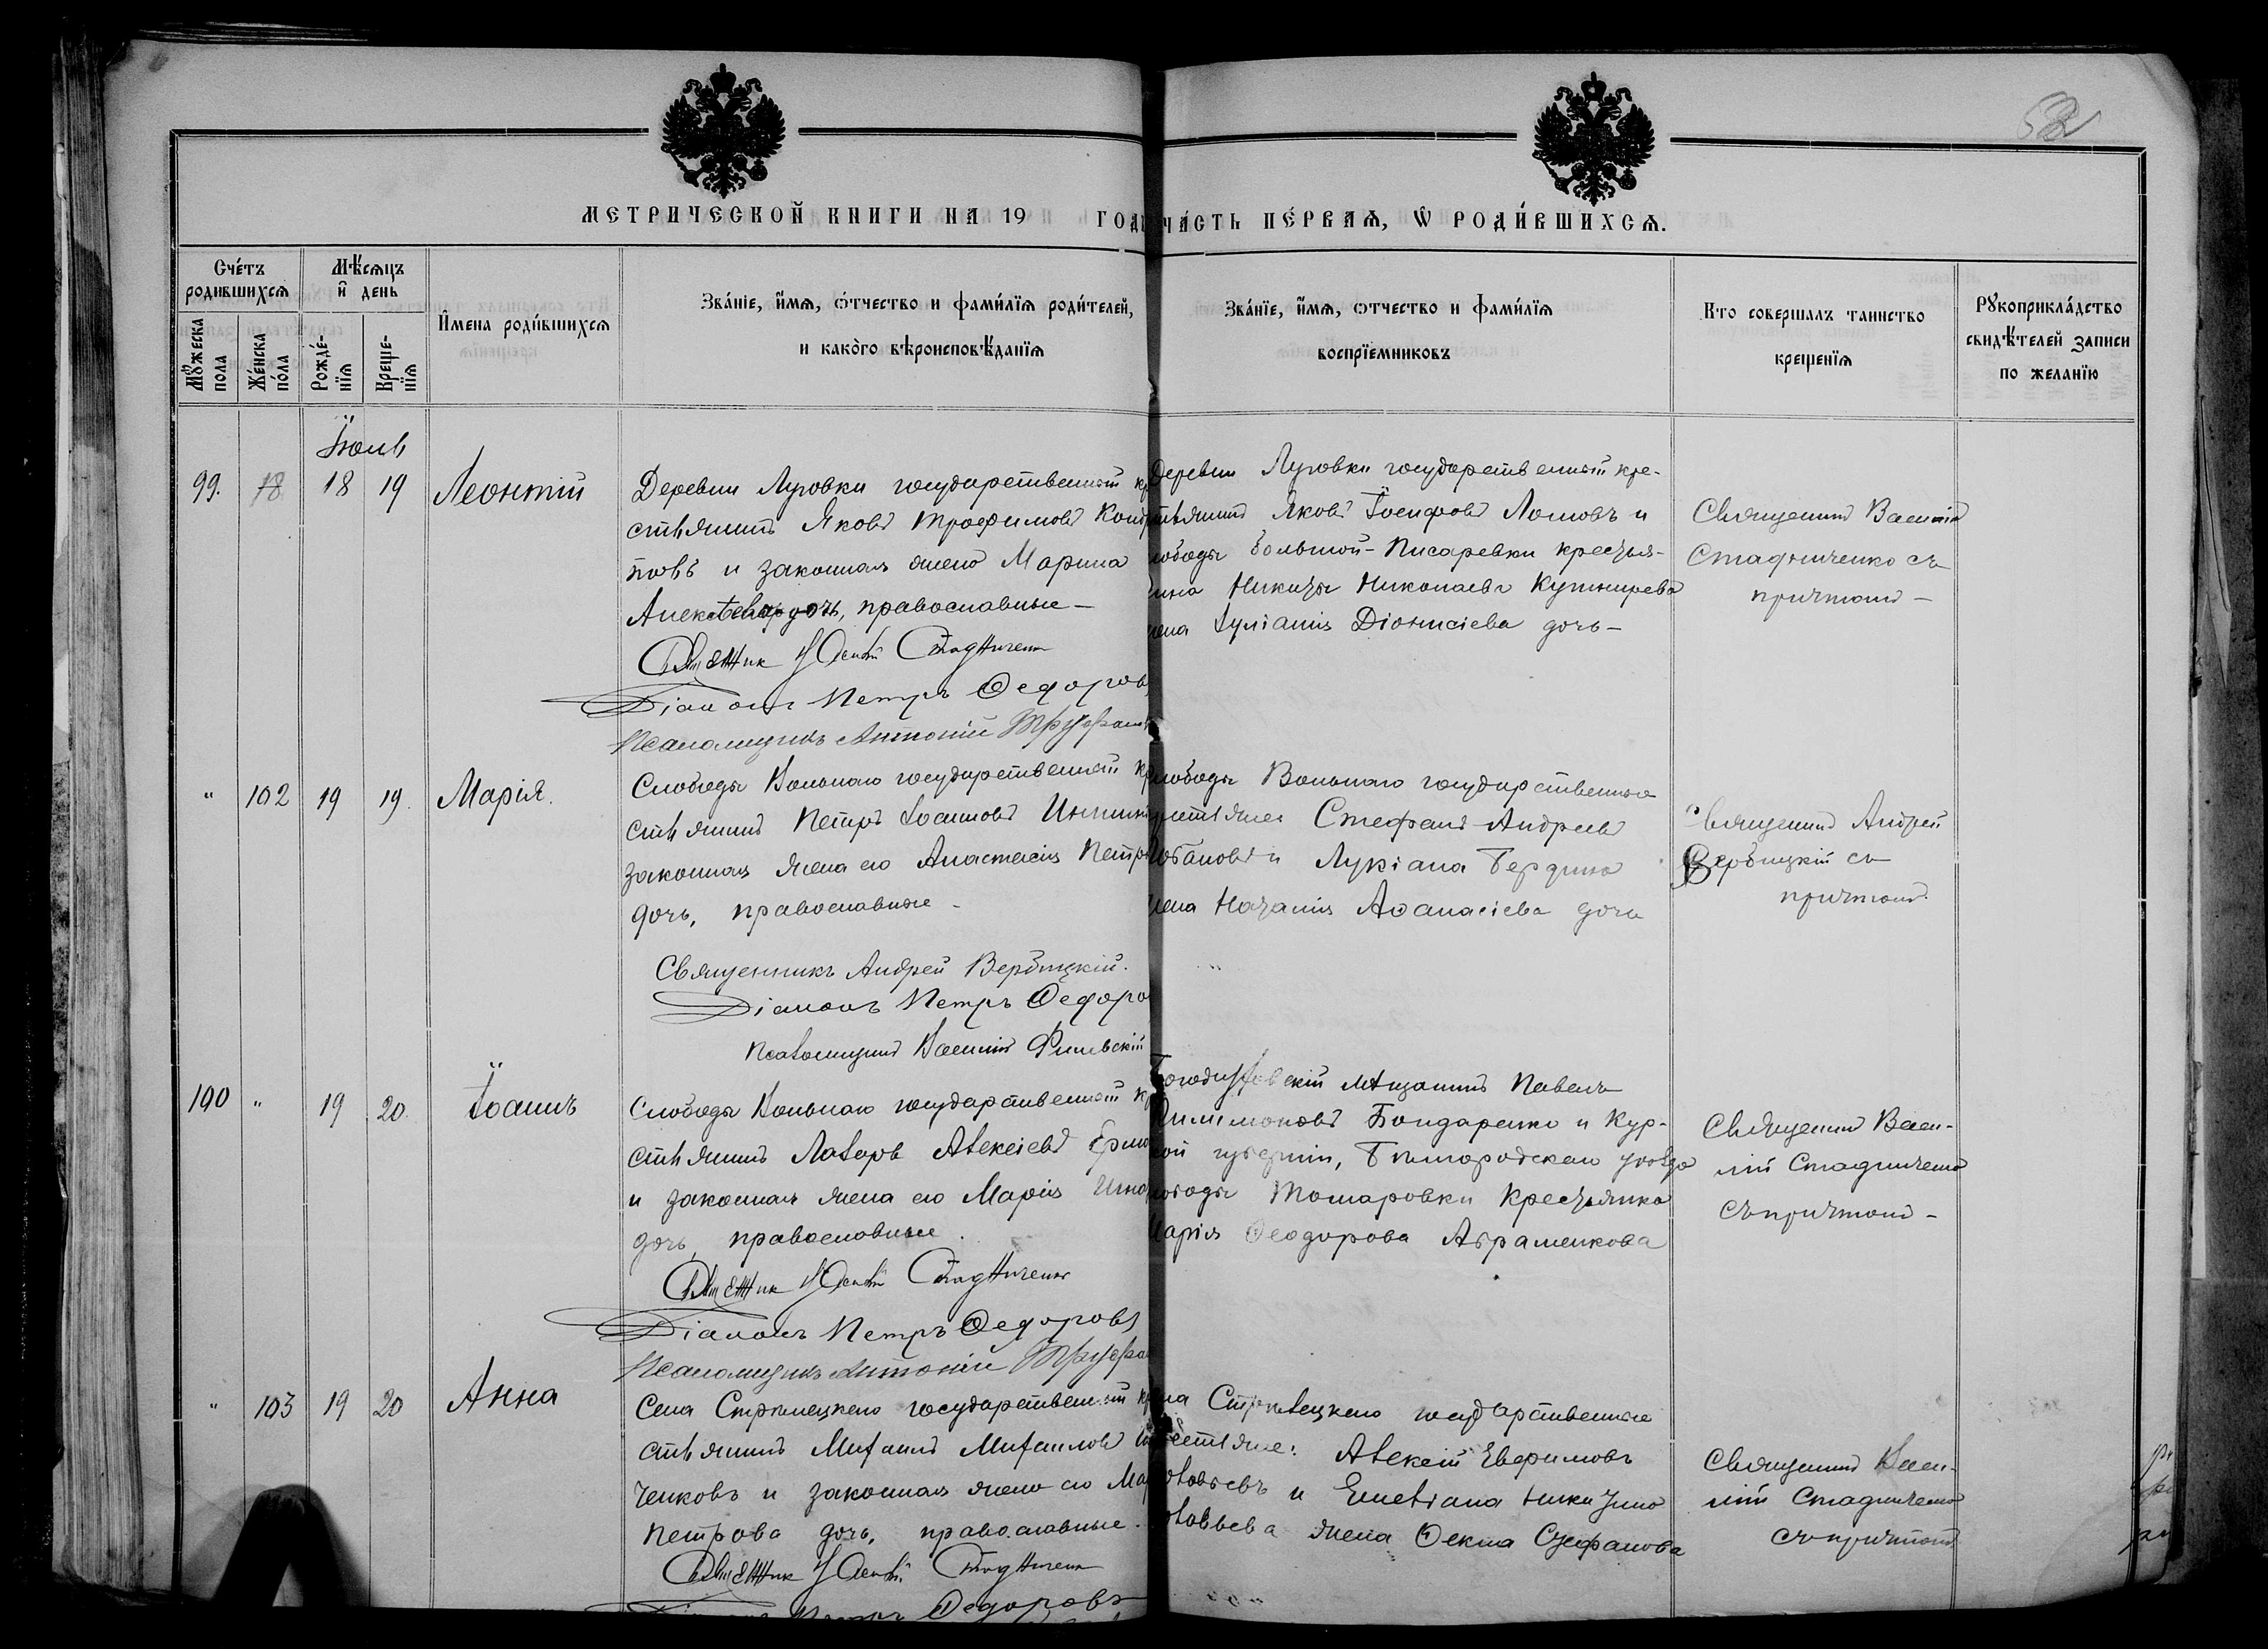 52
МЕТРИЧЕСКОЙ КНИГИ НА 19 ГОДЪ ЧА́СТЬ ПЕ́РВАЯ, Ѡ҆ РОДИ́ВШИХСЯ.
Сче́тъ родившихся
Мѣ́сяцъ и҆ день
Мꙋ́жеска пола
Же́нска по́ла
Рожде́нїя
Креще-нїя
И҆мена роди́вшихся
Зва́нїе, и҆́мя, ѻ҆́тчество и фами́лїя роди́телей,
и како́го вѣроисповѣ́данїя
Зва́нїе, и҆́мя, ѻтчество и фами́лїя
воспрїемниковъ
Кто совершалъ таинство
крещенїя
Рꙋкоприкла́дство
свидѣ́телей записи
по желанїю
Іюль
99. 18 18 19 Леонтій
Деревни Луговки государственный кре-
стьянинъ Яковъ Трофимовъ
и законная жена Марина
дочь, православные –
Свщенник Стадниченк
Діаконъ Петръ Ѳедоровъ
Псаломщикъ Антоній
Деревни Луговки государственный кре-
стьянинъ Яковъ Іосифовъ Ломовъ и
слободы Большой-Писаревки крестья-
нина Никиты Николаева Кушнирева
жена Іуліанія Діонисіева дочь –
Священникъ Василій
Стадниченко съ
причтомъ –
" 102 19 19. Марія.
Слободы Вольнаго государственный кре
стьянинъ Петръ Іоанновъ
законная жена его Анастасія Петро
дочь, православные –
Священникъ Андрей Вербицкій.
Діаконъ Петръ Ѳедоро
Псаломщикъ Василій
слободы Вольнаго государственные
крестьяне: Стефанъ Андреевъ
и Лукіана Бердина
жена Наталія Аѳанасіева дочь
Священникъ Андрей
Вербицкій съ
причтомъ.
100 " 19 20. Іоаннъ
Слободы Вольнаго государственный кре
стьянинъ Лазарь Алексіевъ
и законная жена его Марія
дочь, православные.
Свщенник Стадниченк
Діаконъ Петръ Ѳедоровъ
Псаломщикъ Антоній
Богодуховскій мѣщанинъ Павелъ
Филимоновъ Бондаренко и Кур-
ской губерніи, Бѣлгородскаго уѣзда
слободы Томаровки крестьянка
Марія Ѳеодорова Авраменкова
Священникъ Васи-
лій Стадниченко
съ причтомъ –
" 103 19 20 Анна
Села Стрѣлецкаго государственный кре
стьянинъ Михаилъ Михаиловъ
ченковъ и законная жена его Мар
Петрова дочь, православные.
Свщенник Стадниченк
Діаконъ Петръ Ѳедоровъ
села Стрѣлецкаго государственные
крестьяне: Алексій Евфимовъ
Соловьевъ и Емеліана Никитина
Соловьева жена Ѳекла Стефанова
Священникъ Васи-
лій Стадниченко
съ причтомъ